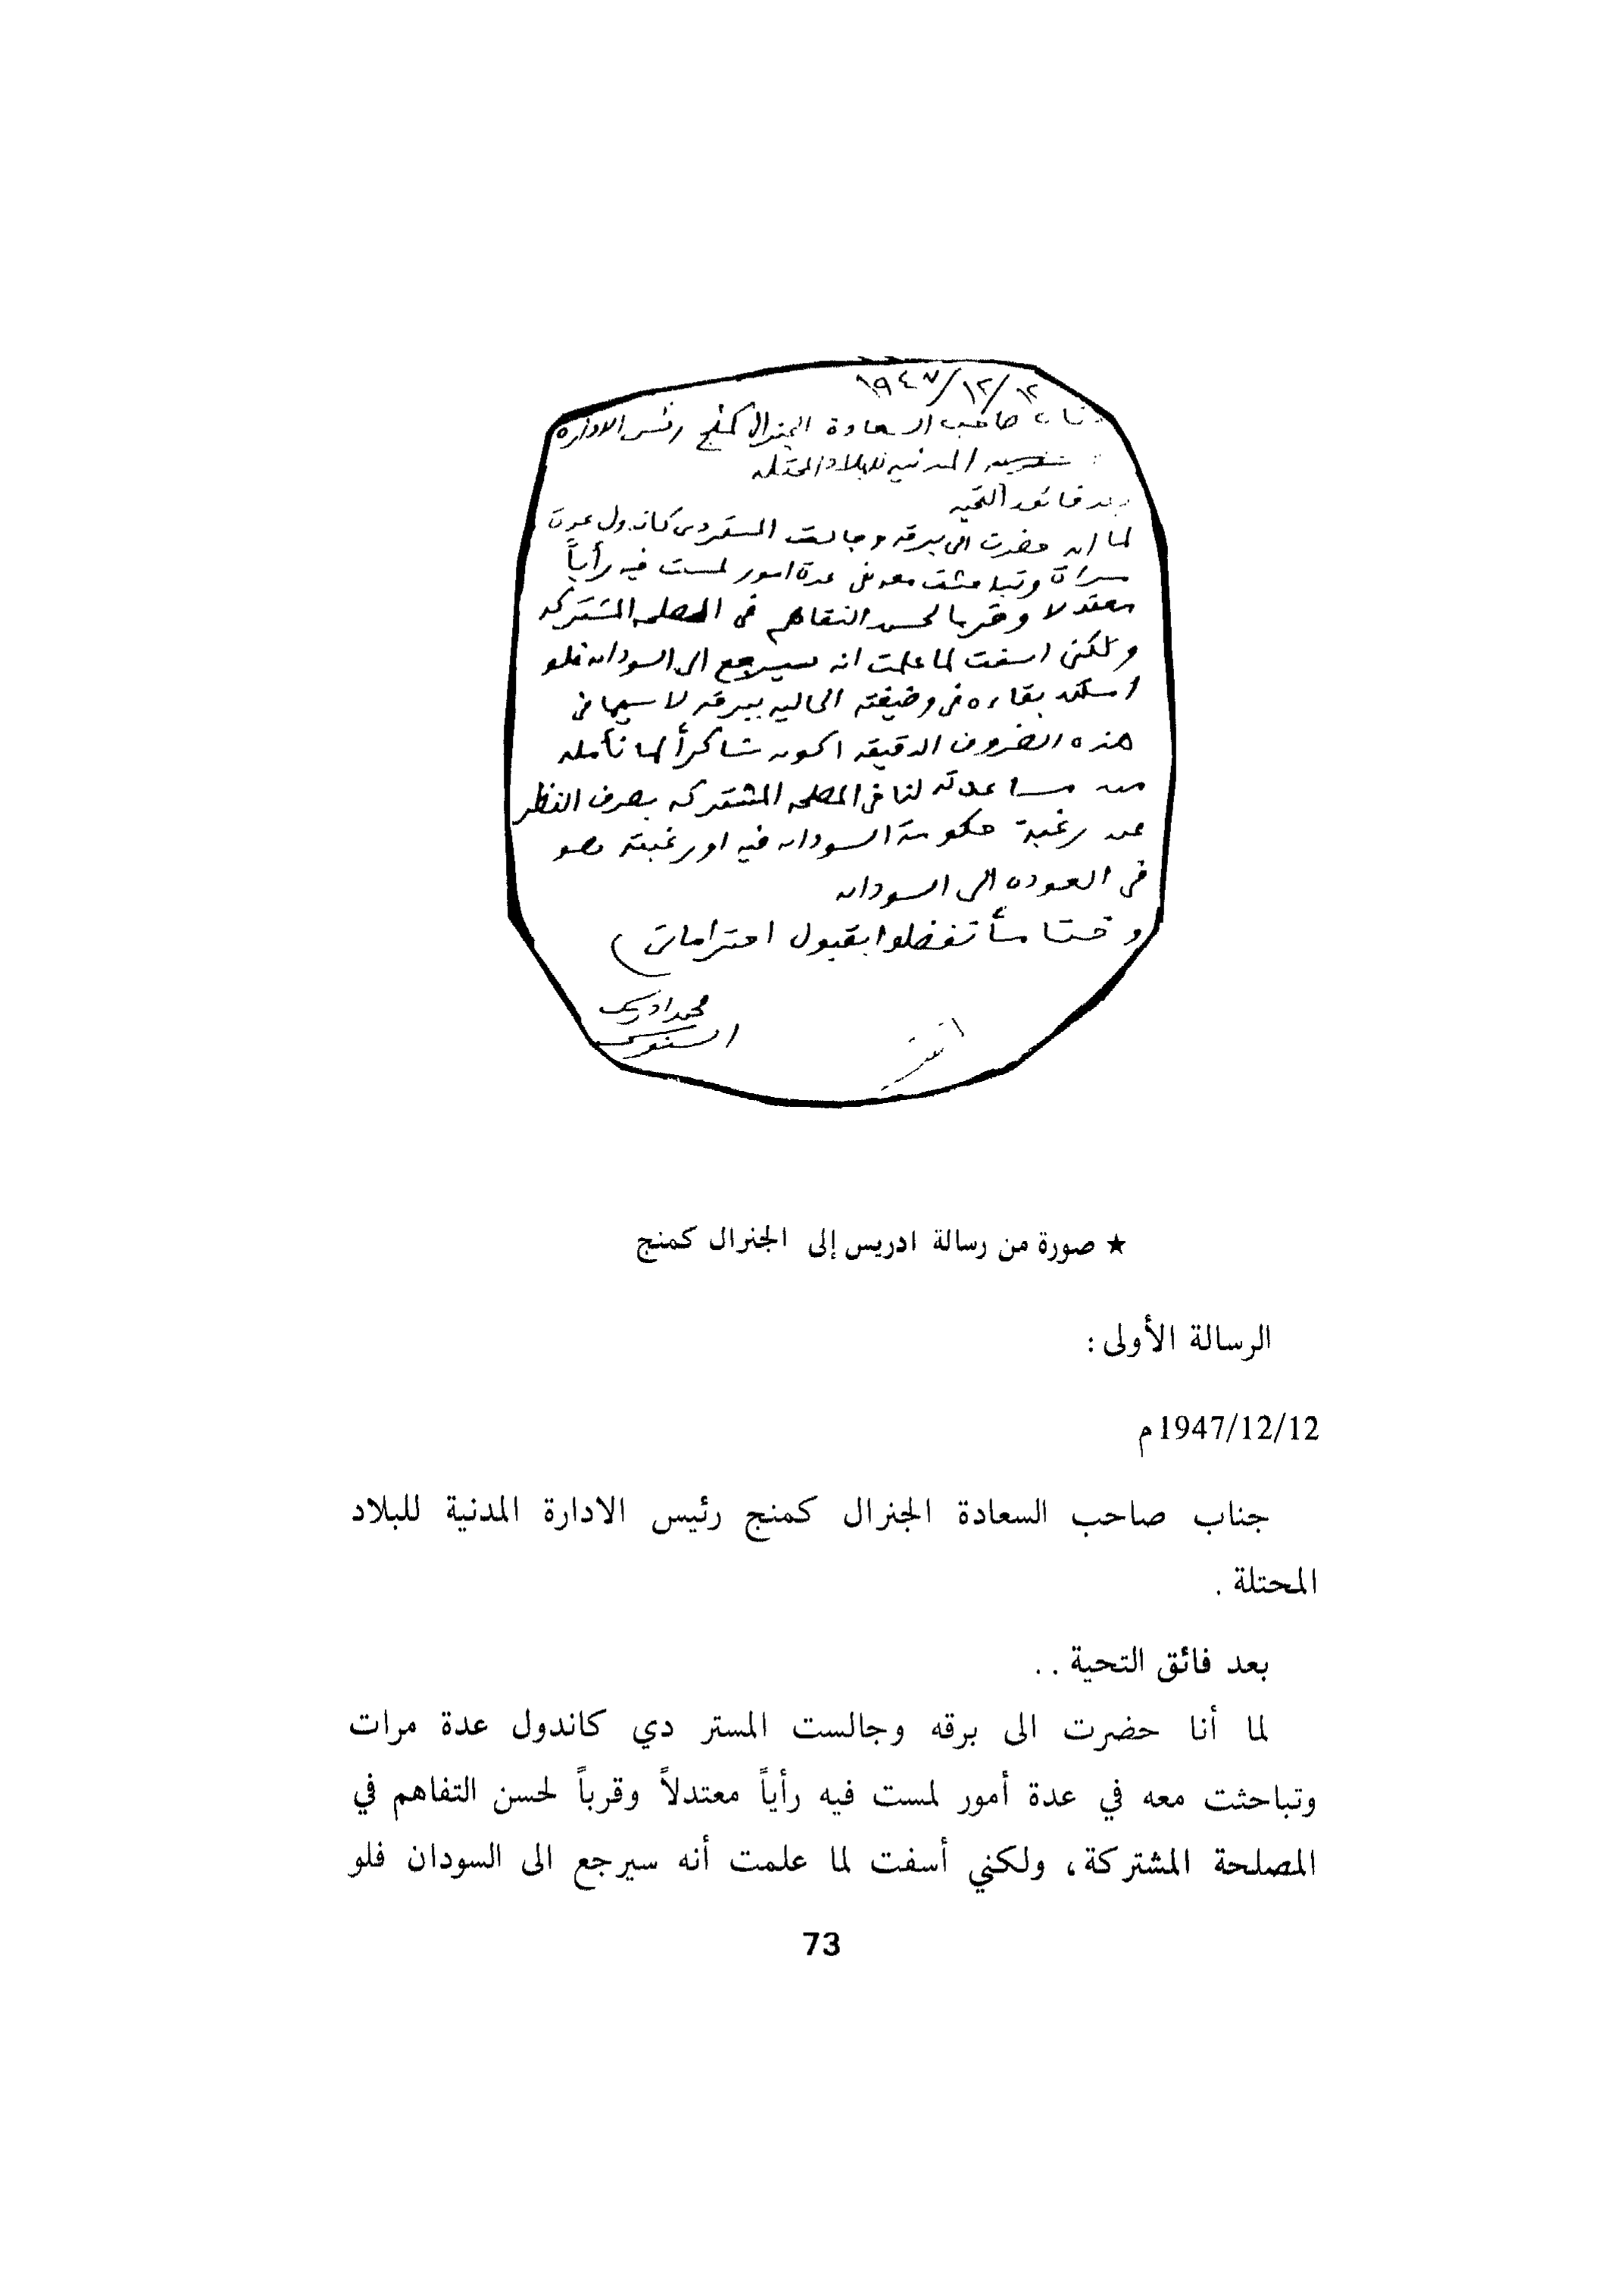 ١٩٤٧/١٢/١٢
صاحب السعادة الجنرال كمنج رئس الاداره
المدنيه للبلاد المحتله
بعد فائق التحيه
لما ان حضرت الى برقه وجالست المستردى كاندول عدة
مراة وتباحثت معه فى عدة امور لمست فيه رأياً
معتدلا وقربا لحسن التفاهم فى المصلحه المشتركه
ولكنى اسفت لما علمت انه سيرجع الى السودان فلو
امكن بقاءه فى وضيفته الحاليه ببرقه لا سيما فى
هذه الضروف الدقيقه اكون شاكراً لما نأمله
من مساعدته لنا فى المصلحه المشتركه بصرف النظر
عن رغبة حكومة السودان فيه او رغبته هو
فى العوده الى السودان
وختاماً تفضلوا بقبول احتراماتى
محمد ادريس
السنوسى
★ صورة من رسالة ادريس إلى الجنرال كمنج
الرسالة الأولى :
1947/12/12 م
جناب صاحب السعادة الجنرال كمنج رئيس الادارة المدنية للبلاد
المحتلة .
بعد فائق التحية . .
لما أنا حضرت الى برقه وجالست المستر دي كاندول عدة مرات
وتباحثت معه في عدة أمور لمست فيه رأياً معتدلاً وقرباً لحسن التفاهم في
المصلحة المشتركة، ولكني أسفت لما علمت أنه سيرجع الى السودان فلو
73